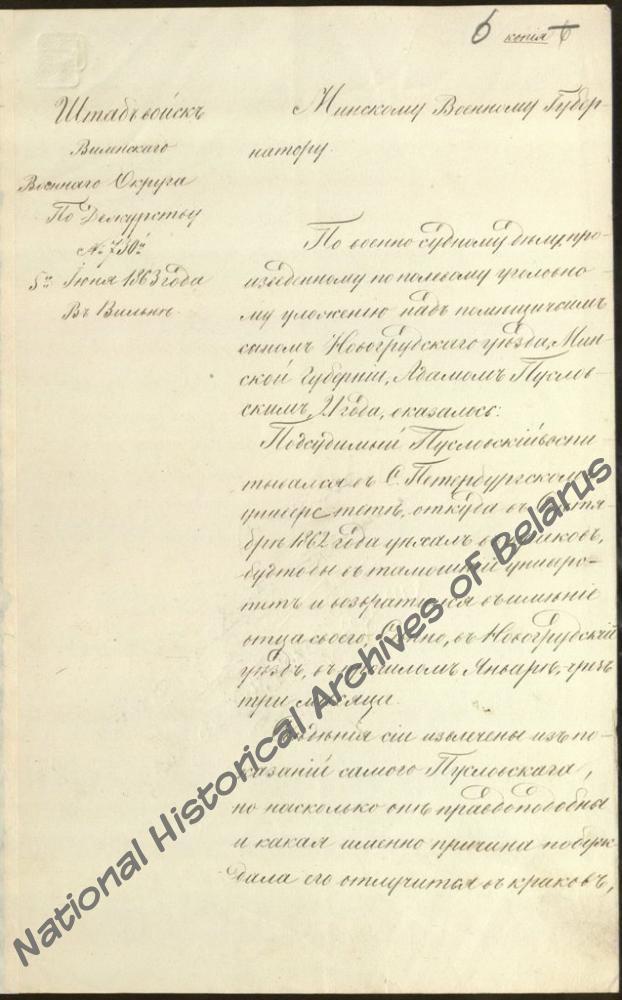 6 копія 6
Штабъ войскъ
Виленскаго
Военнаго Округа
По Дежурству
№ 730
5го Іюня 1863 года
Въ Вильнѣ.
Минскому Военному Губер-
натору.
По военно судному дѣлу, про-
изведенному по полевому уголовно-
му уложенію надъ помѣщичьимъ
сыномъ Новогрудскаго уѣзда, Мин-
ской Губерніи, Адамомъ Пуслов-
скимъ, 21 года, оказалось:
Подсудимый Пусловскій воспи
тывался въ С. Петербургскомъ
университетѣ, откуда въ
1862 года уѣхалъ въ
будтобы въ тамошній универс-
тетъ и возвратился въ имѣніе
отца своего, въ Новогрудскій
уѣздъ, въ прошломъ Январѣ, чрезъ
три мѣсяца.
сіи извлечены изъ по-
казаній самого Пусловскаго,
но насколько онѣ правдоподобны
и какая именно причина побуж
дала его отлучится въ краковъ,
National Historical Archives of Belarus